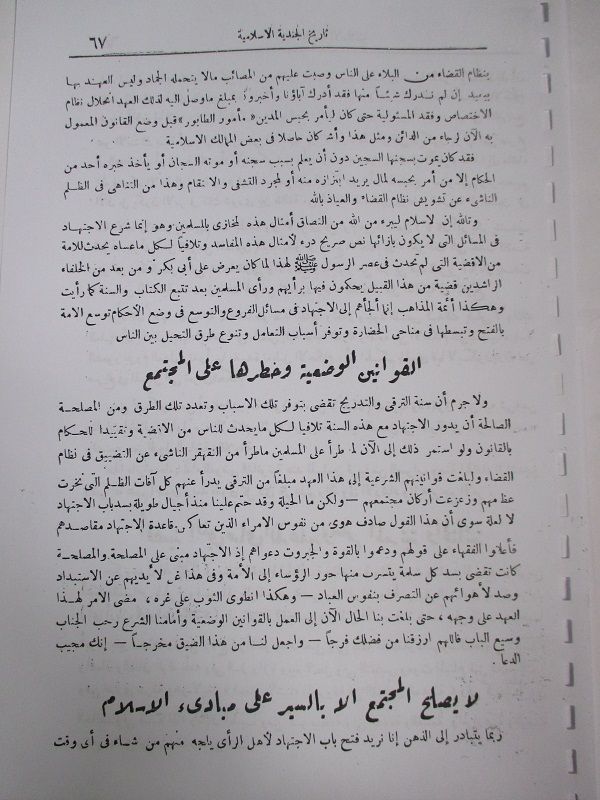 تاريخ الجندية الاسلامية
٦٧
بنظام القضاء من البلاء على الناس وصبت عليهم من المصائب مالا يتحمله الجماد وليس العهد بها
ببعيد إن لم ندرك شيئا منها فقد أدرك آباؤنا وأخبرونا بمبلغ ماوصل اليه لذلك العهد انحلال نظام
الاختصاص وفقد المسئولية حتى كان ليأمر بحبس المدين « مأمور الطابور » قبل وضع القانون المعمول
به الآن لرجاء من الدائن ومثل هذا وأشد كان حاصلا فى بعض الممالك الاسلامية
فقد كان يموت بسجنها السجين دون أن يعلم بسبب سجنه أو موته السجان أو يأخذ خبره أحد من
الحكام إلا من أمر بحبسه لمال يريد ابتزازه منه أو لمجرد التشفى والانتقام وهذا من التناهى فى الظلم
الناشىء عن تشويش نظام القضاء والعياذ بالله
وتالله إن الاسلام ليبرء من الله من التصاق أمثال هذه المخازى بالمسلمين وهو إنما شرع الاجتهاد
فى المسائل التى لا يكون بازائها نص صريح درء لأمثال هذه المفاسد وتلافيا لكل ماعساه يحدث للامة
من الاقضية التى لم تحدث فى عصر الرسول ﷺ لهذا لما كان يعرض على أبى بكر و من بعد من الخلفاء
الراشدين قضية من هذا القبيل يحكمون فيها برأيهم ورأى المسلمين بعد تتبع الكتاب والسنة كما رأيت
وهكذا أئمة المذاهب إنما ألجأهم إلى الاجتهاد فى مسائل الفروع والتوسع فى وضع الأحكام توسع الامة
بالفتح وتبسطها فى مناحى الحضارة وتوفر أسباب التعامل وتنوع طرق التحيل بين الناس
القوانين الوضعية وخطرها على المجتمع
ولا جرم أن سنة الترقى والتدريج تقضى بتوفر تلك الاسباب وتعدد تلك الطرق ومن المصلحة
الصالحة أن يدور الاجتهاد مع هذه السنة تلافيا لكل مايحدث للناس من الاقضية وتقييدا للحكام
بالقانون ولو استمر ذلك إلى الآن لما طرأ على المسلمين ماطرأ من التقهقر الناشىء عن التضييق فى نظام
القضاء ولبلغت قوانينهم الشرعية إلى هذا العهد مبلغا من الترقى يدرأ عنهم كل آفات الظلم التى نخرت
عظامهم وزعزعت أركان مجتمعهم — ولكن ما الحيلة وقد حتم علينا منذ أجيال طويلة بسد باب الاجتهاد
لا لعلة سوى أن هذا القول صادف هوى من نفوس الامراء الذين تعاكس قاعدة الاجتهاد مقاصدهم
فأعلنوا الفقهاء على قولهم ودعموا بالقوة والجبروت دعواهم إذ الاجتهاد مبنى على المصلحة والمصلحة
كانت تقضى بسد كل سلمة يتسرب منها جور الرؤساء إلى الأمة وفى هذا غل لأيديهم عن الاستبداد
وصد لأهوائهم عن التصرف بنفوس العباد — وهكذا انطوى الثوب على غره ، مضى الامر لهذا
العهد على وجهه ، حتى بلغت بنا الحال الآن إلى العمل بالقوانين الوضعية وأمامنا الشرع رحب الجناب
وسيع الباب فاللهم ارزقنا من فضلك فرجاً — واجعل لنا من هذا الضيق مخرجاً — إنك مجيب
الدعا .
لا يصلح المجتمع الا بالسير على مبادىء الاسلام
ربما يتبادر إلى الذهن إنا نريد فتح باب الاجتهاد لأهل الرأى يلجه منهم من شاء فى أى وقت